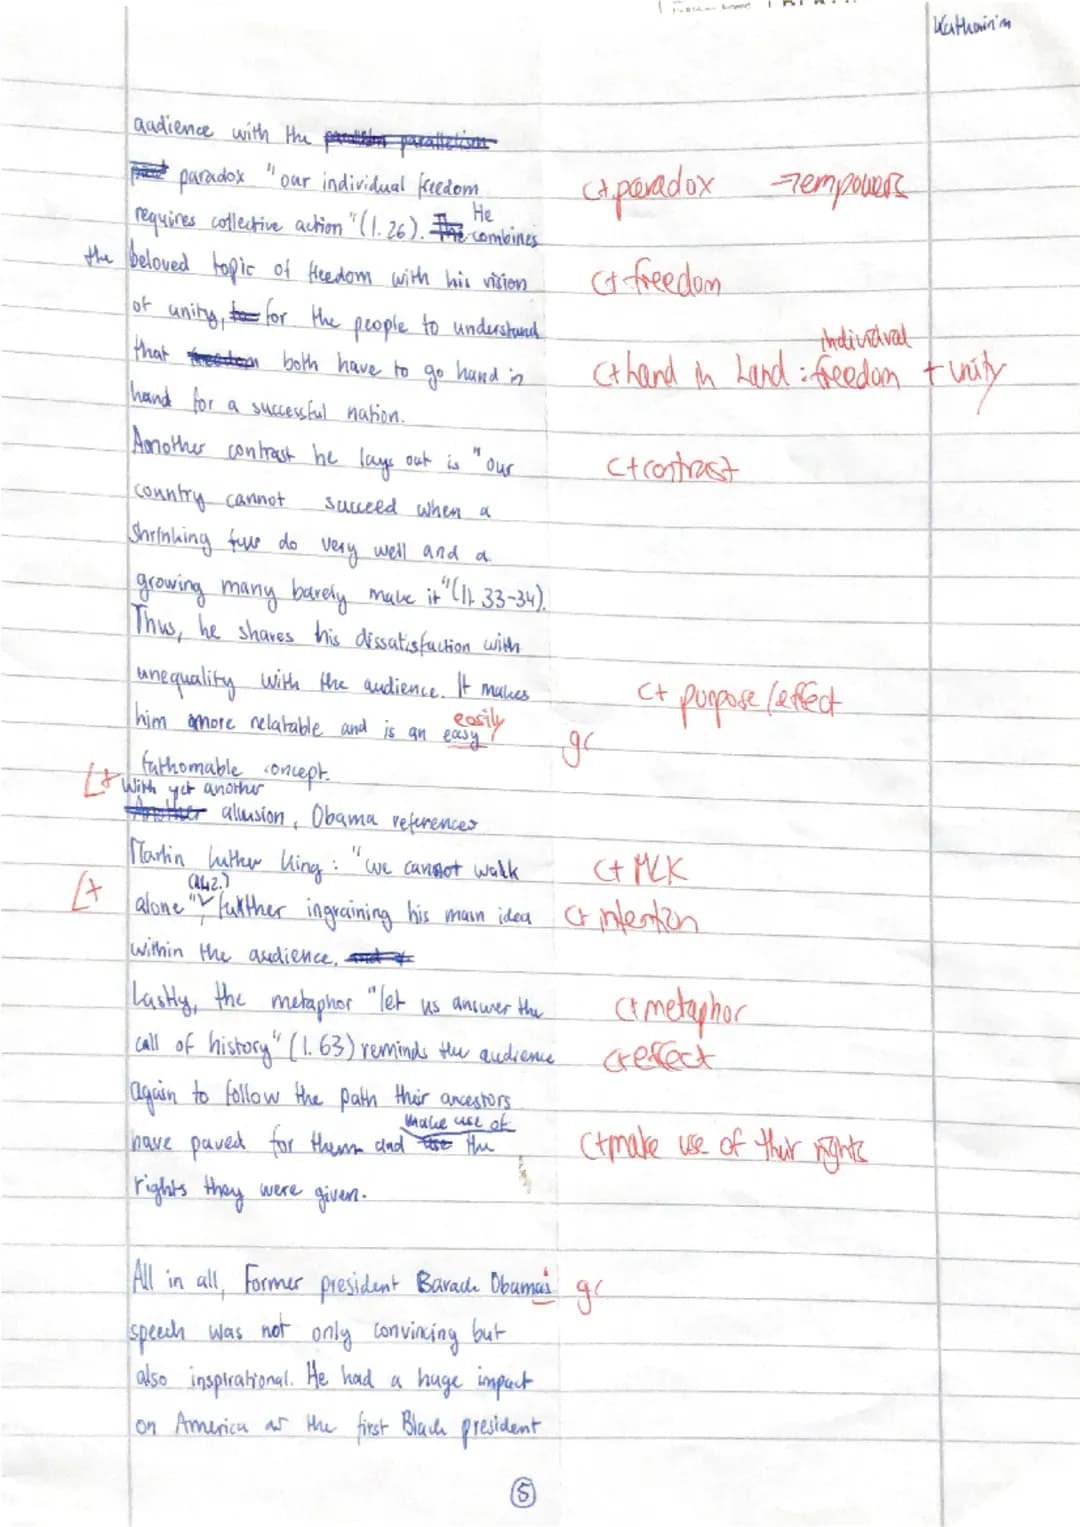 Katharin
audience with the parallelism
paradox "our individual freedom C+ paradox → empowers
requires collective action" (l. 26). The He combines
the beloved topic of freedom with his vision C+ freedom
of unity, to for the people to understand
that freedom both have to go hand in C+ hand in hand : individual freedom + unity
hand for a successful nation.
Another contrast he lays out is "our C+ contrast
country cannot succeed when a
shrinking few do very well and a
growing many barely make it" (ll. 33-34).
Thus, he shares his dissatisfaction with
unequality with the audience. It makes C+ purpose/effect
him more relatable and is an easy easily gr
fathomable concept.
L+ With yet another
Another allusion, Obama references
Martin Luther King: "we cannot walk C+ MLK
L+ alone" (l. 42), further ingraining his main idea C+ intention
within the audience. and
Lastly, the metaphor "let us answer the C+ metaphor
call of history" (l. 63) reminds the audience C+ effect
again to follow the path their ancestors
have paved for them and use make use of the C+ make use of their rights
rights they were given.
All in all, Former president Barack Obama's gr
speech was not only convincing but
also inspirational. He had a huge impact
on America as the first Black president
5